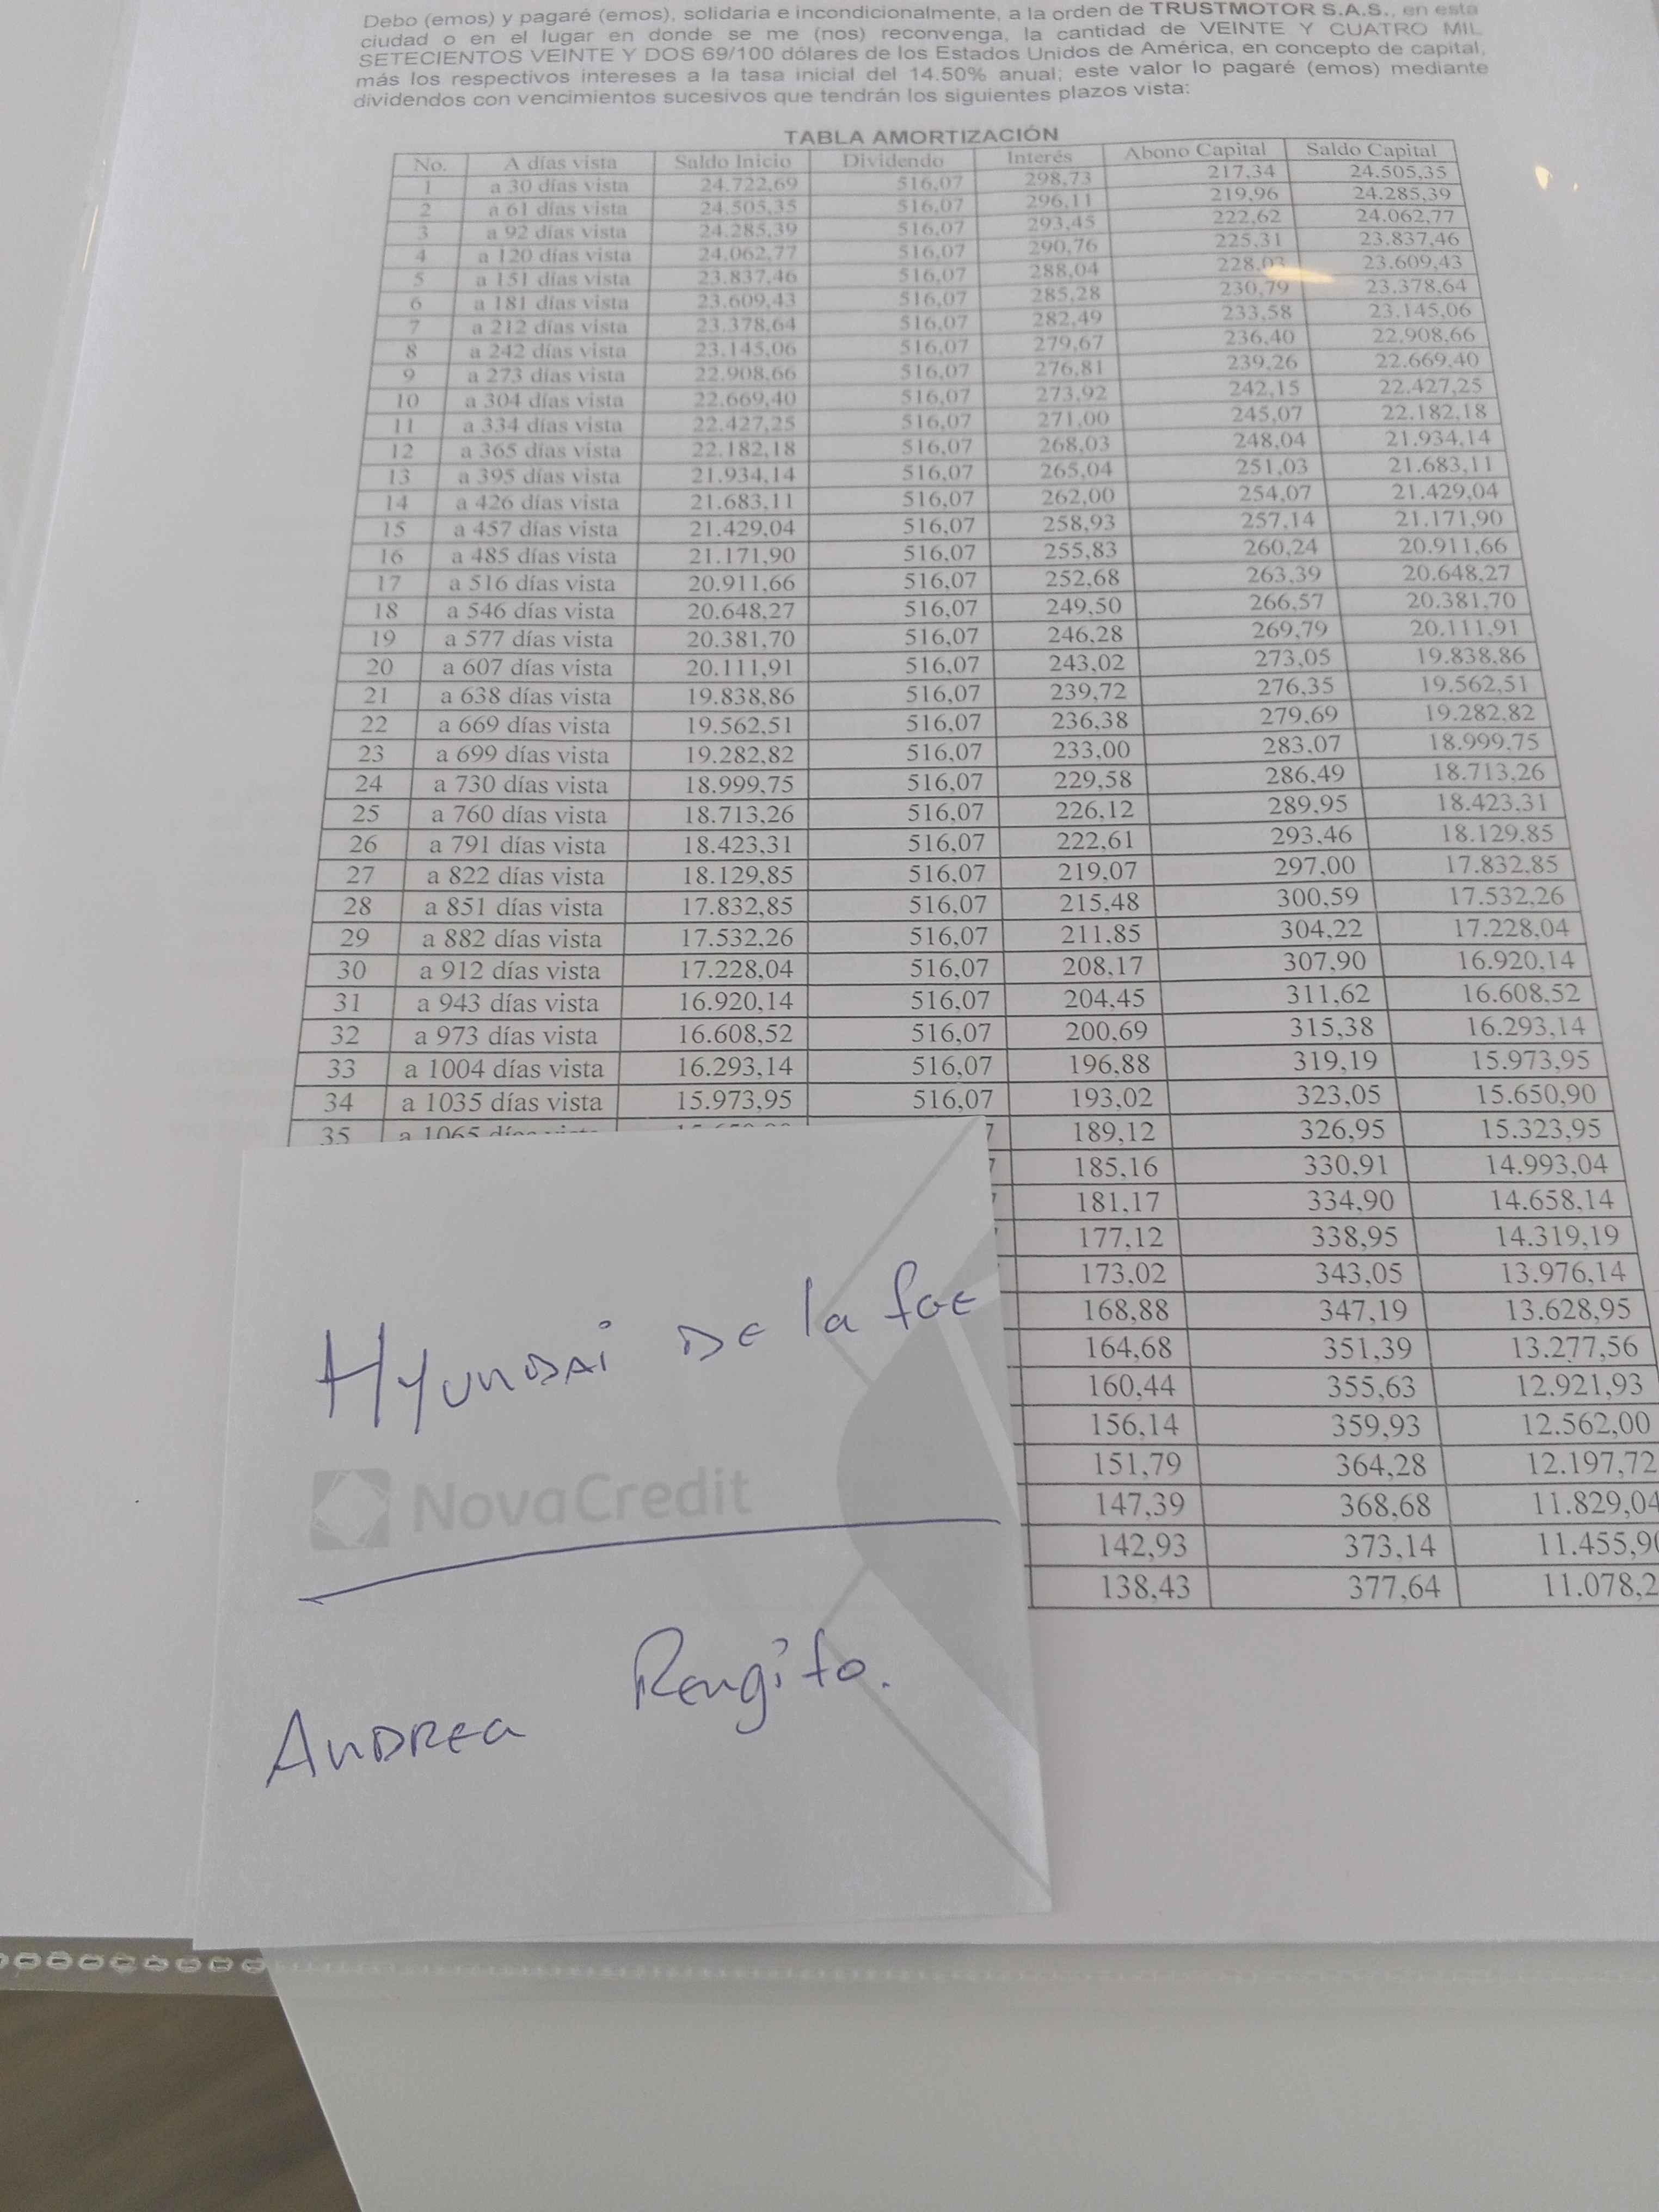 Debo (emos) y pagaré (emos), solidaria e incondicionalmente, a la orden de TRUSTMOTOR S.A.S., en esta
ciudad o en el lugar en donde se me (nos) reconvenga, la cantidad de VEINTE Y CUATRO MIL
SETECIENTOS VEINTE Y DOS 69/100 dólares de los Estados Unidos de América, en concepto de capital,
más los respectivos intereses a la tasa inicial del 14.50% anual; este valor lo pagaré (emos) mediante
dividendos con vencimientos sucesivos que tendrán los siguientes plazos vista:
TABLA AMORTIZACIÓN
No. A días vista Saldo Inicio Dividendo Interés Abono Capital Saldo Capital
1 a 30 días vista 24.722,69 516,07 298,73 217,34 24.505,35
2 a 61 días vista 24.505,35 516,07 296,11 219,96 24.285,39
3 a 92 días vista 24.285,39 516,07 293,45 222,62 24.062,77
4 a 120 días vista 24.062,77 516,07 290,76 225,31 23.837,46
5 a 151 días vista 23.837,46 516,07 288,04 228,03 23.609,43
6 a 181 días vista 23.609,43 516,07 285,28 230,79 23.378,64
7 a 212 días vista 23.378,64 516,07 282,49 233,58 23.145,06
8 a 242 días vista 23.145,06 516,07 279,67 236,40 22.908,66
9 a 273 días vista 22.908,66 516,07 276,81 239,26 22.669,40
10 a 304 días vista 22.669,40 516,07 273,92 242,15 22.427,25
11 a 334 días vista 22.427,25 516,07 271,00 245,07 22.182,18
12 a 365 días vista 22.182,18 516,07 268,03 248,04 21.934,14
13 a 395 días vista 21.934,14 516,07 265,04 251,03 21.683,11
14 a 426 días vista 21.683,11 516,07 262,00 254,07 21.429,04
15 a 457 días vista 21.429,04 516,07 258,93 257,14 21.171,90
16 a 485 días vista 21.171,90 516,07 255,83 260,24 20.911,66
17 a 516 días vista 20.911,66 516,07 252,68 263,39 20.648,27
18 a 546 días vista 20.648,27 516,07 249,50 266,57 20.381,70
19 a 577 días vista 20.381,70 516,07 246,28 269,79 20.111,91
20 a 607 días vista 20.111,91 516,07 243,02 273,05 19.838,86
21 a 638 días vista 19.838,86 516,07 239,72 276,35 19.562,51
22 a 669 días vista 19.562,51 516,07 236,38 279,69 19.282,82
23 a 699 días vista 19.282,82 516,07 233,00 283,07 18.999,75
24 a 730 días vista 18.999,75 516,07 229,58 286,49 18.713,26
25 a 760 días vista 18.713,26 516,07 226,12 289,95 18.423,31
26 a 791 días vista 18.423,31 516,07 222,61 293,46 18.129,85
27 a 822 días vista 18.129,85 516,07 219,07 297,00 17.832,85
28 a 851 días vista 17.832,85 516,07 215,48 300,59 17.532,26
29 a 882 días vista 17.532,26 516,07 211,85 304,22 17.228,04
30 a 912 días vista 17.228,04 516,07 208,17 307,90 16.920,14
31 a 943 días vista 16.920,14 516,07 204,45 311,62 16.608,52
32 a 973 días vista 16.608,52 516,07 200,69 315,38 16.293,14
33 a 1004 días vista 16.293,14 516,07 196,88 319,19 15.973,95
34 a 1035 días vista 15.973,95 516,07 193,02 323,05 15.650,90
35 a 1065 días vista 7 189,12 326,95 15.323,95
7 185,16 330,91 14.993,04
7 181,17 334,90 14.658,14
177,12 338,95 14.319,19
173,02 343,05 13.976,14
168,88 347,19 13.628,95
164,68 351,39 13.277,56
160,44 355,63 12.921,93
156,14 359,93 12.562,00
151,79 364,28 12.197,72
147,39 368,68 11.829,04
142,93 373,14 11.455,90
138,43 377,64 11.078,2
Hyundai De la
NovaCredit
Andrea Rengifo.